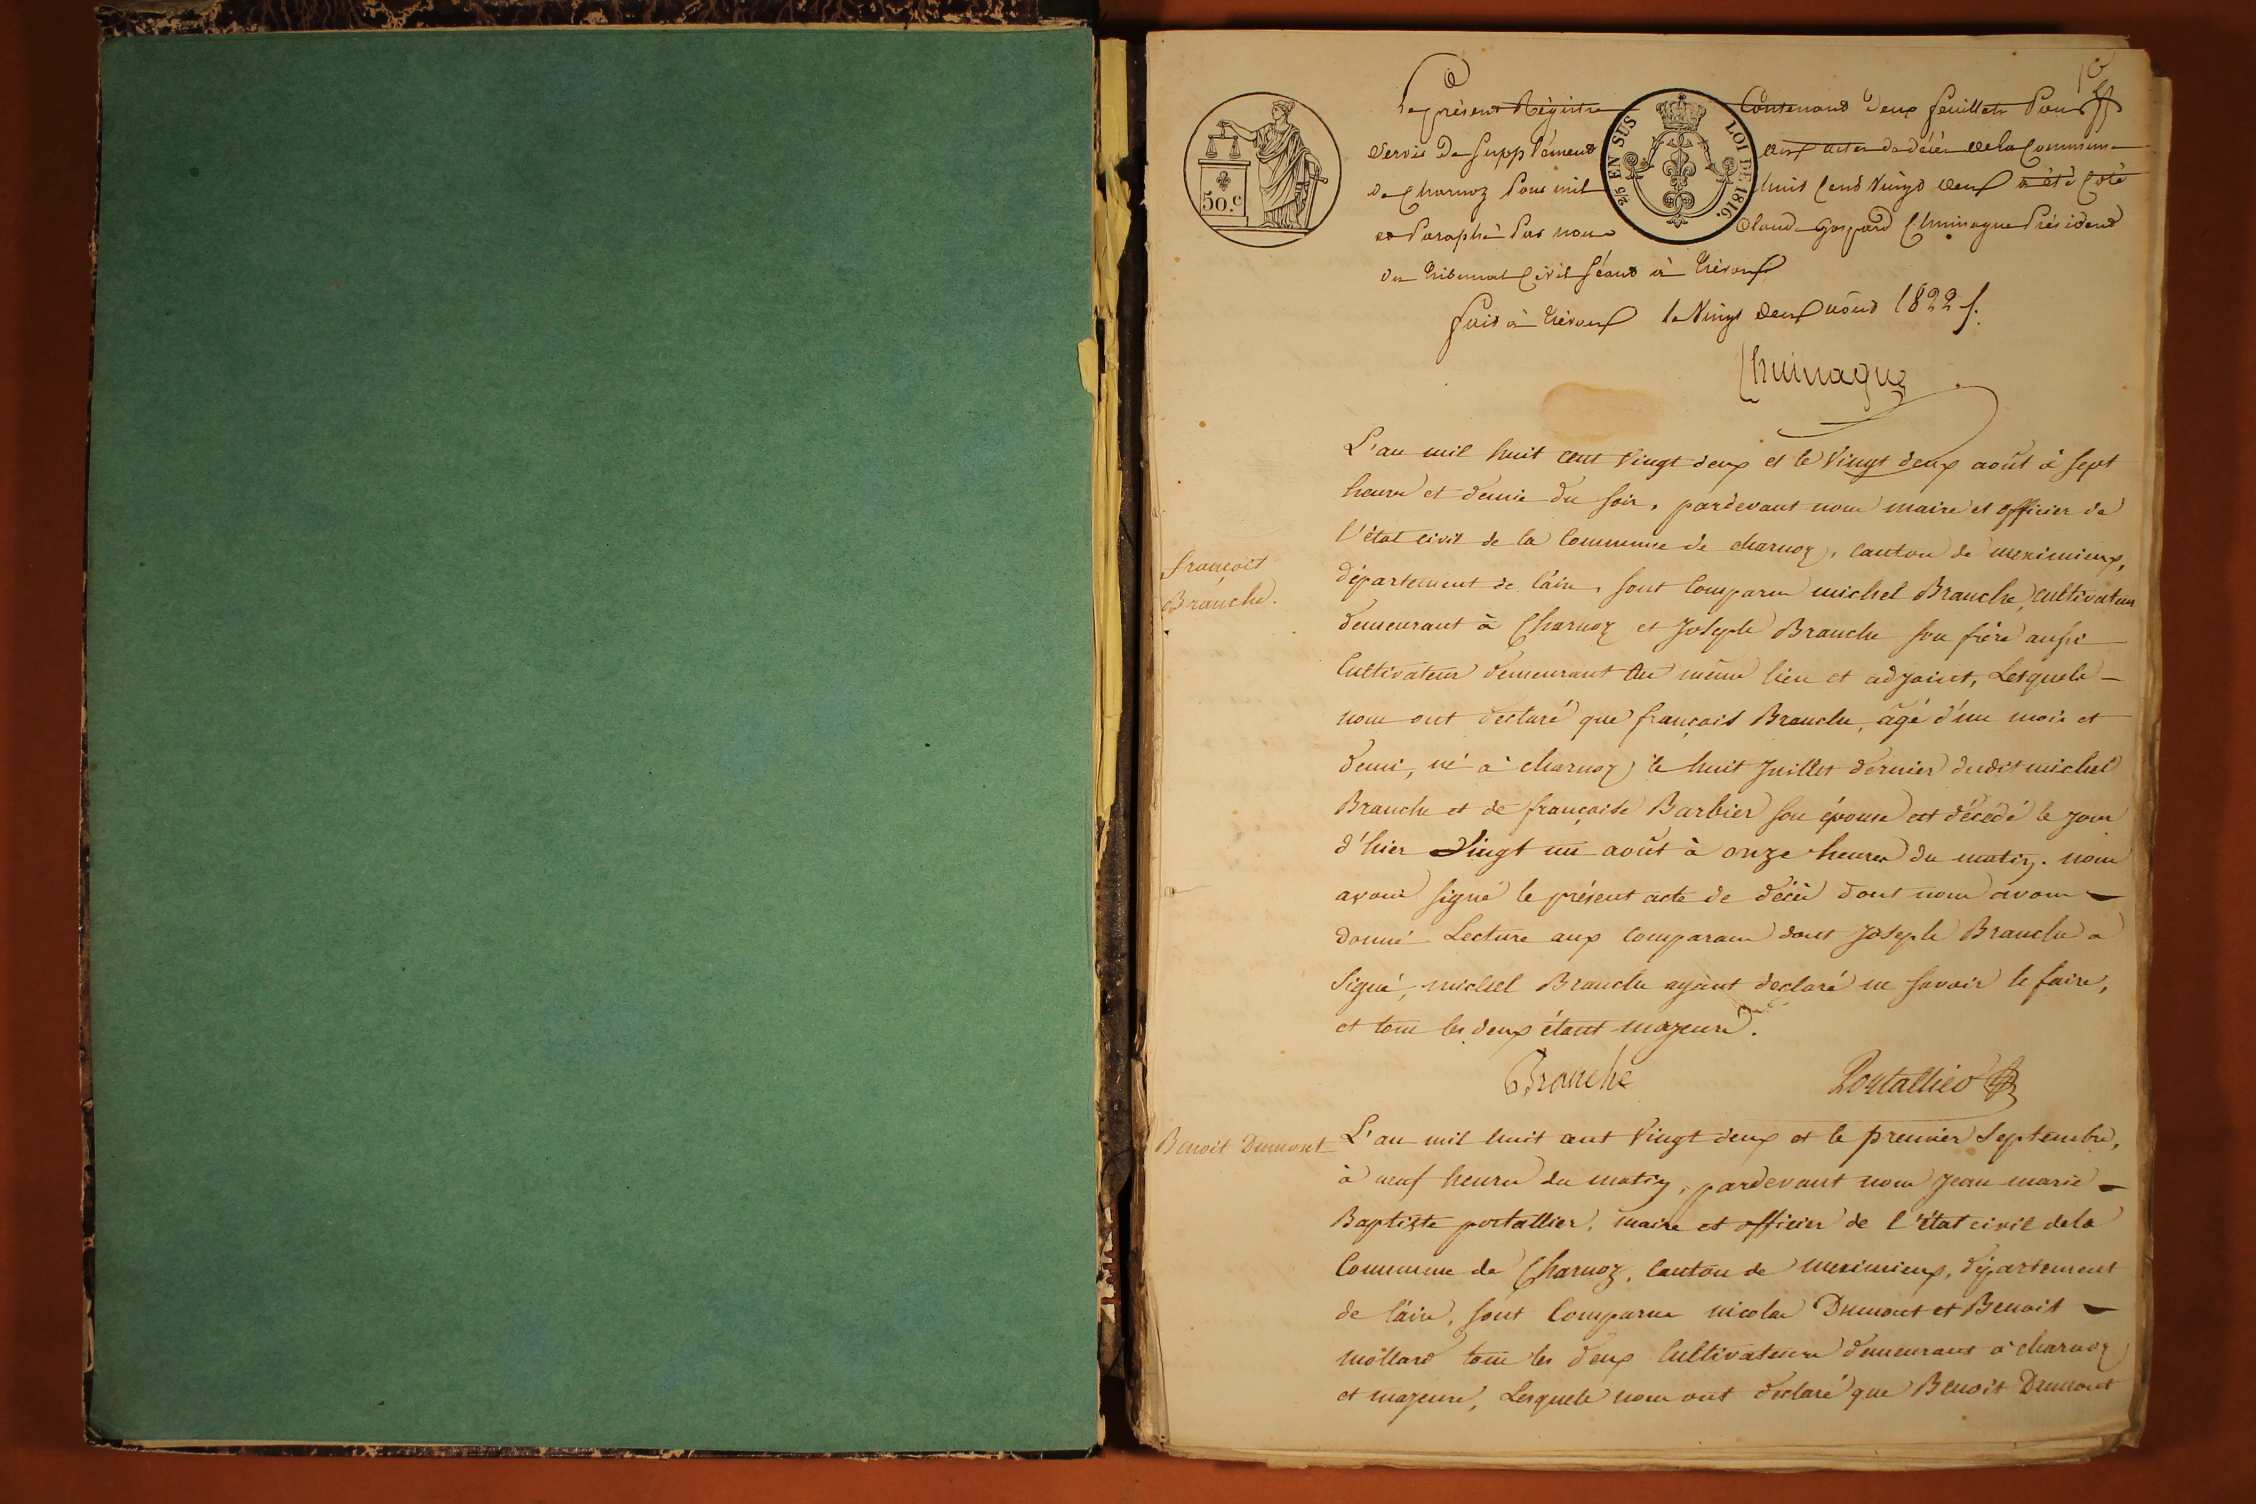 Le présent Régistre Contenant deux feuillets Pour
servir de Supplément des actes de décès de la Commune
de Charnoz Pour mil huit Cent Vingt deux a été Coté
et Paraphé Par nous Claude Gaspard Chuinague Président
du Tribunal Civil Séant à Trévoux
fait à Trévoux le Vingt deux août 1822 ./.
Chuinague
50.c
2/5 EN SUS
LOI DE 1816.
françois
Branche.
L'an mil huit cent vingt deux et le vingt deux août à sept
heures et demie du soir, pardevant nous maire et officier de
l'état civil de la Commune de charnoz, canton de meximieux,
département de l'ain, sont Comparus michel Branche, cultivateur
demeurant à Charnoz et Joseph Branche son frère aussi
Cultivateur demeurant au même lieu et adjoint, Lesquels
nous ont declaré que françois Branche, âgé d'un mois et
demi, né à charnoz le huit Juillet dernier dudit michel
Branche et de françoise Barbier son épouse est décédé le jour
d'hier Vingt un août à onze heures du matin. nous
avons signé le présent acte de décès dont nous avons
donné Lecture aux comparans dont Joseph Branche a
signé, michel Branche ayant declaré ne savoir le faire,
et tous les deux étant majeurs.
Branche Portallier
Benoit Dumont
L'an mil huit cent vingt deux et le premier Septembre,
à neuf heures du matin, pardevant nous Jean marie
Baptiste portallier, maire et officier de l'état civil de la
Commune de Charnoz, canton de meximieux, département
de l'ain, sont Comparus nicolas Dumont et Benoit
mollard tous les deux Cultivateurs demeurans à charnoz
et majeurs, Lesquels nous ont declaré que Benoit Dumont